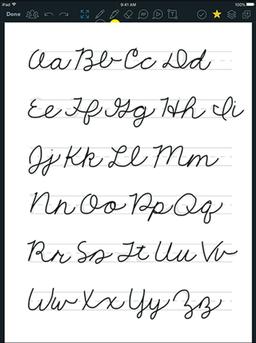 iPad 9:41 AM 100%
Done
Aa Bb Cc Dd
Ee Ff Gg Hh Ii
Jj Kk Ll Mm
Nn Oo Pp Qq
Rr Ss Tt Uu Vv
Ww Xx Yy Zz